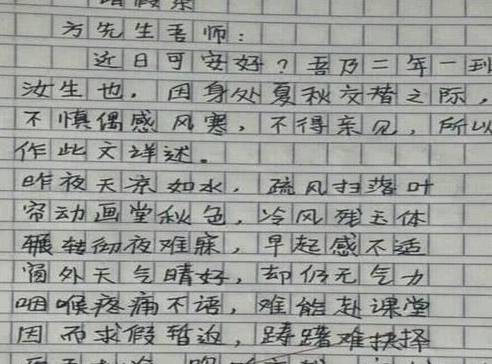 请假条
方先生吾师：
近日可安好？吾乃二年一到
汝生也，因身处夏秋交替之际，
不慎偶感风寒，不得亲见，所以
作此文详述。
昨夜天凉如水，疏风扫落叶
帘动画堂秋色，冷风残玉体
辗转彻夜难寐，早起感不适
窗外天气晴好，却仍无气力
咽喉疼痛不语，难能赴课堂
因而求假暂返，踌躇难抉择